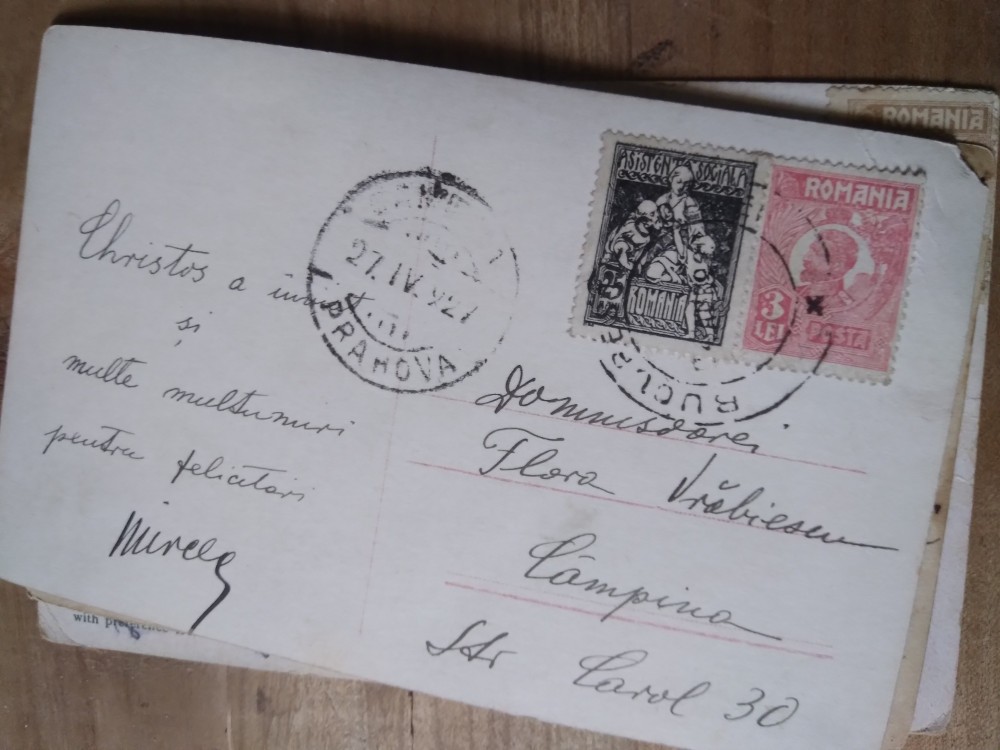 Christos a inviat
si
multe multumiri
pentru felicitari
Mircea
27.IV.927
PRAHOVA
ASISTENTA SOCIALA
25
ROMANIA
ROMANIA
3
LEI
POSTA
BUCUR
Domnisoarei
Flora Vrăbiescu
Câmpina
Str Carol 30
ROMANIA
with preference